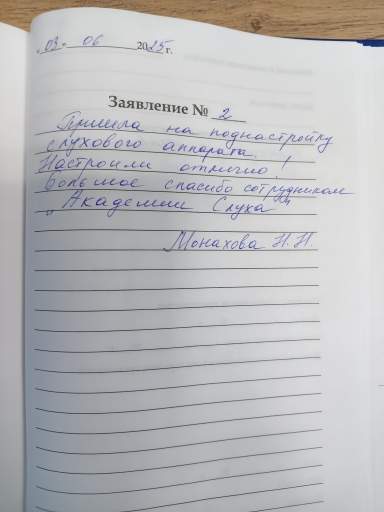 „03" 06 2025 г.
Заявление № 2
Пришла на поднастройку
слухового аппарата.
Настроили отлично!
Большое спасибо сотрудникам
„Академии Слуха"
Монахова Н.Н.